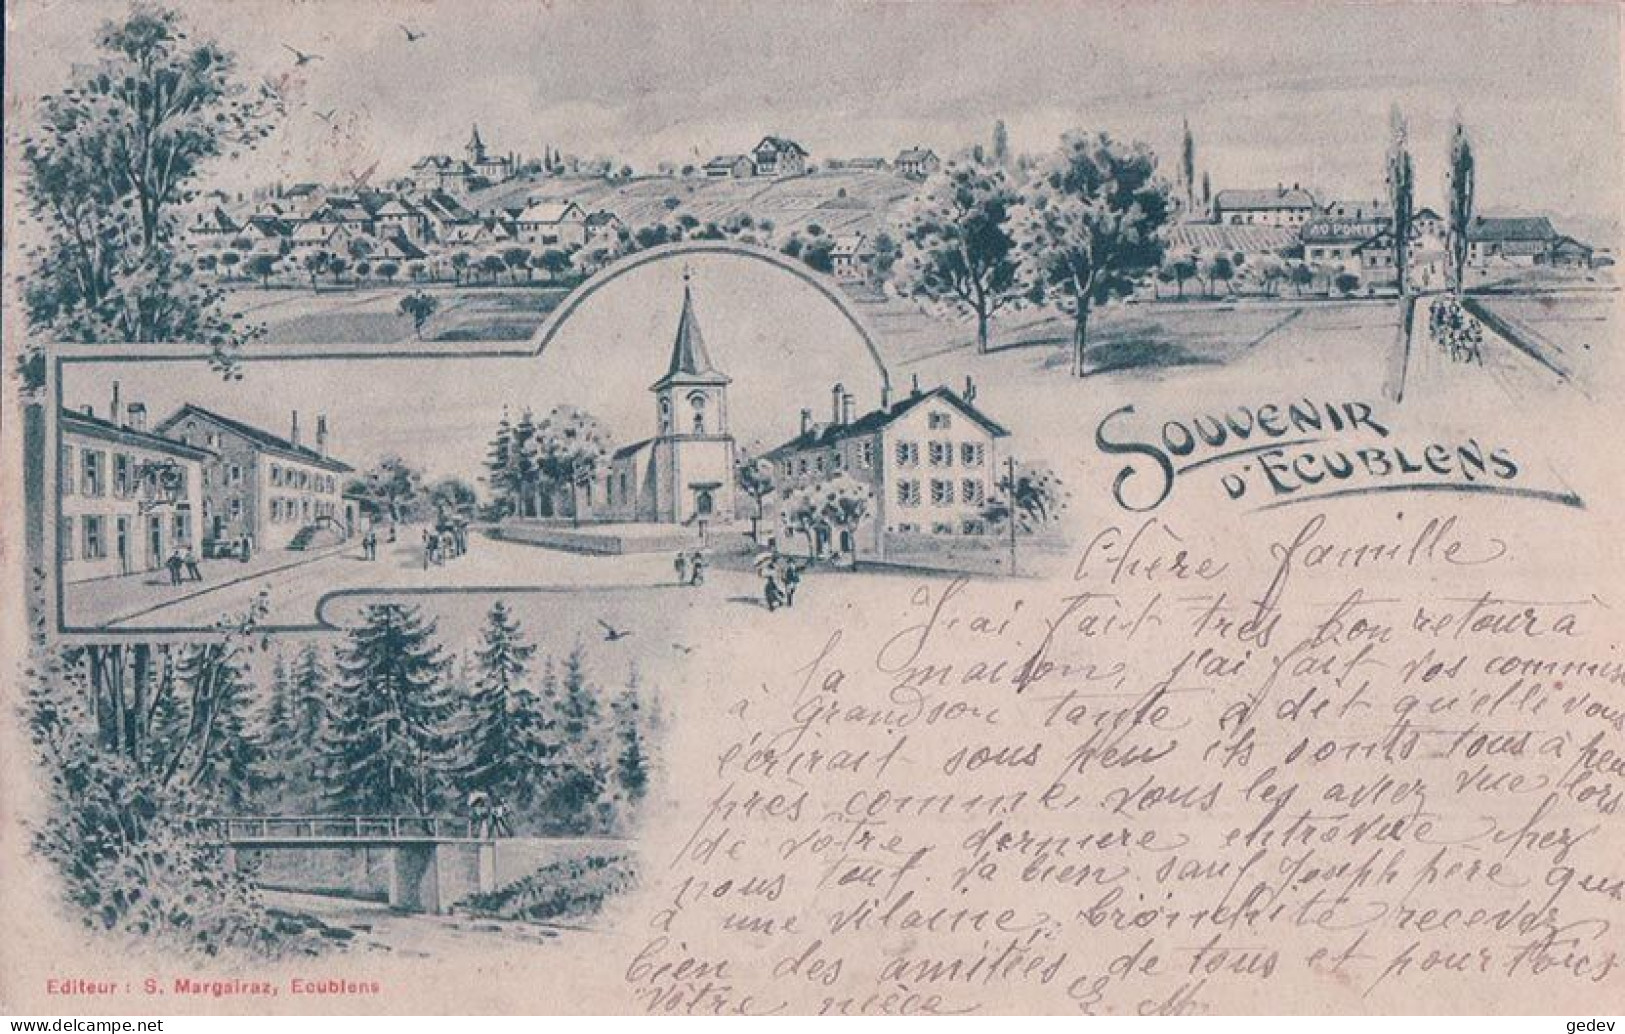 AU PONT
SOUVENIR
D'ECUBLENS
Chère famille
J'ai fait très bon retour à
la maison, j'ai fait vos commis
à Grandson tante à dit qu'elle vous
écrirait sous peu ils sonts tous à peu
près comme vous les avez vue lors
de vôtre dernière entrevue chez
nous tout va bien sauf Joseph père qui
a une vilaine bronchite recevez
bien des amitées de tous et pour tous
Vôtre nièce E. M.
Editeur : S. Margairaz, Ecublens
gedev